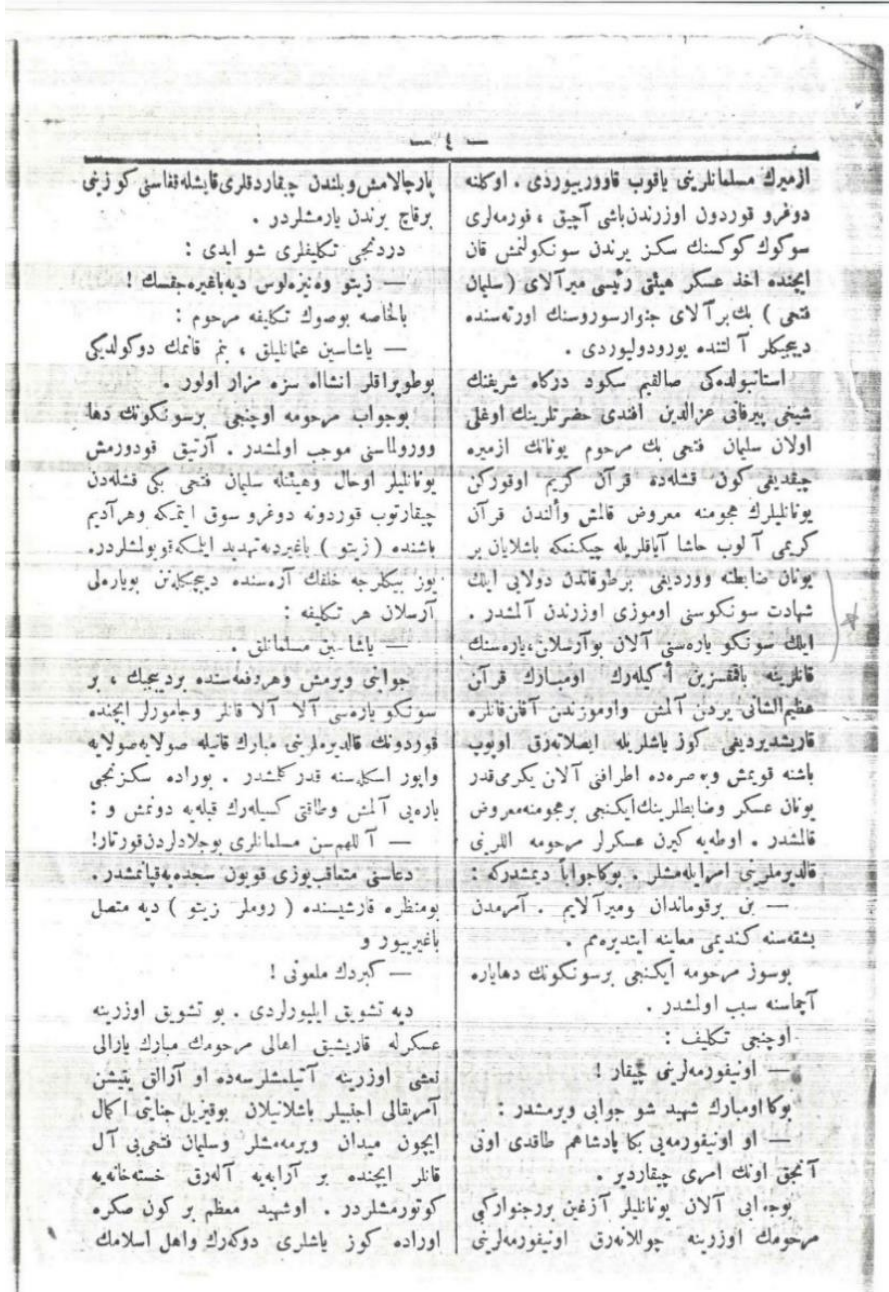 — ٤ —
ازمیرك مسلمانلرینی یاقوب قاووریوردی . اوكلنه
دوغرو قوردون اوزرندن باشی آچیق ، فورمه‌لری
سوكوك كوكسنك سكز یرندن سونكولنمش قان
ایچنده اخذ عسكر هیئتی رئیسی میرآلای ( سلیمان
فتحی ) بك بر آلای جنوار سوروسنك اورته‌سنده
دیپچیكلر آلتنده یورودولیوردی .
استانبولده‌كی صالقیم سكود دركاه شریفنك
شیخی پیرفانی عزالدین افندی حضرتلرینك اوغلی
اولان سلیمان فتحی بك مرحوم یونانك ازمیره
چیقدیغی كون قشله‌ده قرآن كریم اوقوركن
یونانلیلرك هجومنه معروض قالمش وألندن قرآن
كریمی آلوب حاشا آیاقلریله چیكنمكه باشلایان بر
یونان ضابطنه ووردیغی بر طوقاتدن دولایی ایلك
شهادت سونكوسنی اوموزی اوزرندن آلمشدر .
ایلك سونكو یاره‌سنی آلان بو آرسلان ، یاره‌سنك
قانلرینه باقمقسزین أكیله‌رك اومبارك قرآن
عظیم‌الشانی یردن آلمش واوموزندن آقان قانلره
قاریشدیردیغی كوز یاشلریله ایصلانه‌رق اوپوب
باشنه قویمش وبو صره‌ده اطرافنی آلان یكرمی قدر
یونان عسكر وضابطلرینك ایكنجی بر هجومنه معروض
قالمشدر . اوطه‌یه كیرن عسكرلر مرحومه اللرینی
قالدیرملرینی امر ایله‌مشلر . بوكا جواباً دیمشدركه :
— بن بر قوماندان ومیرآلایم . آمرمدن
بشقه‌سنه كندیمی معاینه ایتدیره‌مم .
بوسوز مرحومه ایكنجی بر سونكونك دها یاره
آچماسنه سبب اولمشدر .
اوچنجی تكلیف :
— اونیفورمه‌لرینی چیقار !
بوكا اومبارك شهید شو جوابی ویرمشدر :
— او اونیفورمه‌یی بكا پادشاهم طاقدی اونی
آنجق اونك امری چیقاردیر .
بوجوابی آلان یونانلیلر آزغین برر جنوار كبی
مرحومك اوزرینه چوللانه‌رق اونیفورمه‌لرینی
پارچالامش وبلندن چیقاردقلری قایشله قفاسنی كوزینی
برقاچ یرندن یارمشلردر .
دردنجی تكلیفلری شو ایدی :
— زیتو وه‌نیزه‌لوس دیه باغیره‌جقسك
بالخاصه بوصوك تكلیفه مرحوم :
— یاشاسین عثمانلیلق ، بنم قانمك دوكولدیكی
بوطوپراقلر انشاالله سزه مزار اولور .
بوجواب مرحومه اوچنجی بر سونكونك دها
وورولماسنی موجب اولمشدر . آرتیق قودورمش
یونانلیلر اوحال وهیئتله سلیمان فتحی بكی قشله‌دن
چیقارتوب قوردونه دوغرو سوق ایتمكه وهرآدیم
باشنده ( زیتو ) باغیر دیه تهدید ایله‌مكه قویولمشلردر.
یوز بیكلرجه خلقك آره‌سنده دیپچیكله‌نن بویاره‌لی
آرسلان هر تكلیفه :
— یاشاسین مسلمانلق .
جوابنی ویرمش وهر دفعه‌سنده بر دیپچیك ، بر
سونكو یاره‌سی آلا آلا قانلر وچامورلر ایچنده
قوردونك قالدیرملرینی مبارك قانیله صولایه صولایه
واپور اسكله‌سنه قدر كلمشدر . بوراده سكزنجی
یاره‌یی آلمش وطاقتی كسیله‌رك قبله‌یه دونمش و :
— آللهم سن مسلمانلری بو جلادلردن قورتار!
دعاسنی متعاقب یوزی قویون سجده‌یه قپانمشدر .
بومنظره قارشیسنده ( روملر زیتو ) دیه متصل
باغیرییور و
— كبردك ملعونی !
دیه تشویق ایلیورلردی . بو تشویق اوزرینه
عسكرله قاریشیق اهالی مرحومك مبارك یارالی
نعشی اوزرینه آتیلمشلرسه‌ده او آرالق یتیشن
آمریقالی اجنبیلر باشلانیلان بوقیزیل جنایتی اكمال
ایچون میدان ویرمه‌مشلر وسلیمان فتحی‌یی آل
قانلر ایچنده بر آرابه‌یه آله‌رق خسته‌خانه‌یه
كوتورمشلردر . اوشهید معظم بر كون صكره
اوراده كوز یاشلری دوكه‌رك واهل اسلامك